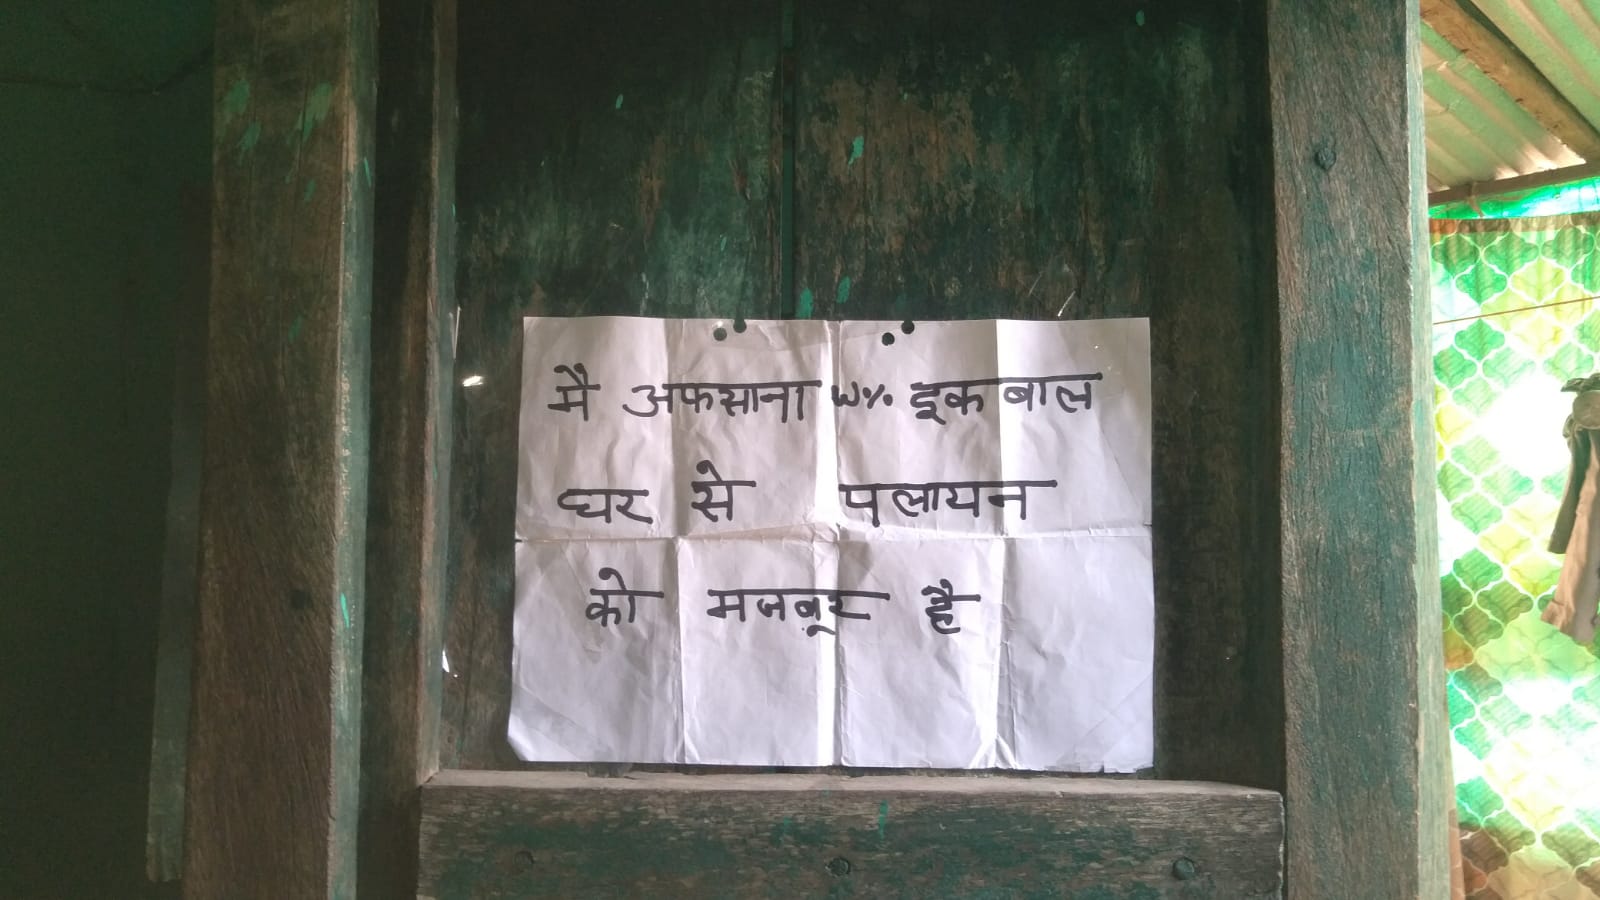 मै अफसाना W/o इकबाल
घर से पलायन
को मजबूर है